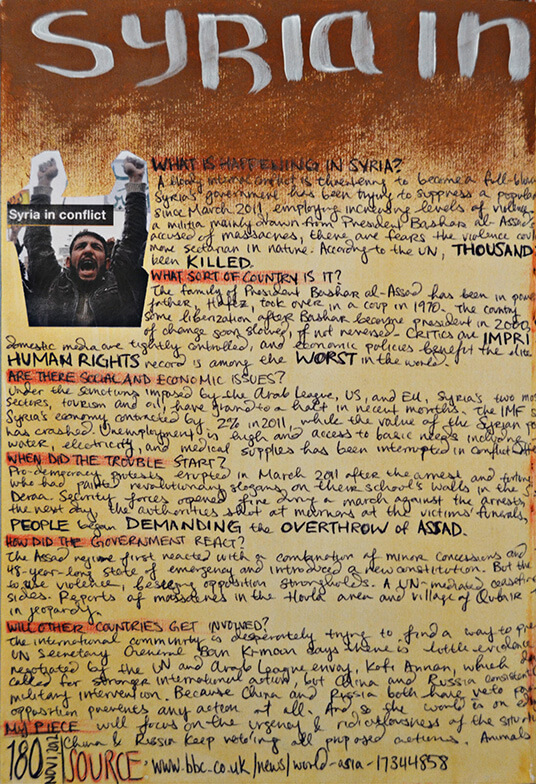 SYRIA IN
Syria in conflict
WHAT IS HAPPENING IN SYRIA?
A bloody internal conflict is threatening to become a full-blow
Syria's government has been trying to suppress a popula
since March 2011, employing increasing levels of violen
a militia mainly drawn from President Bashar al-Assad
accused of massacres, there are fears the violence coul
more sectarian in nature. According to the UN, THOUSAND
been KILLED.
WHAT SORT OF COUNTRY IS IT?
The family of President Bashar al-Assad has been in powe
father, Hafez, took over in a coup in 1970. The country
some liberization after Bashar became president in 2000,
of change soon slowed, if not reversed. Critics are IMPRI
domestic media are tightly controlled, and economic policies benefit the elite
HUMAN RIGHTS record is among the WORST in the world.
ARE THERE SOCIAL AND ECONOMIC ISSUES?
Under the sanctions imposed by the Arab League, US, and EU, Syria's two mos
sectors, tourism and oil, have ground to a halt in recent months. The IMF s
Syria's economy contracted by 2% in 2011, while the value of the Syrian po
has crashed. Unemployment is high and access to basic needs including
water, electricity, and medical supplies has been interrupted in conflict
WHEN DID THE TROUBLE START?
Pro-democracy protests erupted in March 2011 after the arrest and
who had painted revolutionary slogans on their school's walls in the s
Deraa. Security forces opened fire during a march against the arrests
the next day, the authorities shot at mourners at the victims' funerals,
PEOPLE began DEMANDING the OVERTHROW of ASSAD.
HOW DID THE GOVERNMENT REACT?
The Assad regime first reacted with a combination of minor concessions and
48-year-long state of emergency and introduced a new constitution. But the
to use violence, besieging opposition strongholds. A UN-mediated ceasefire
sides. Reports of massacres in the Houla area and village of Qubair
in jeopardy.
WILL OTHER COUNTRIES GET INVOLVED?
The international community is desperately trying to find a way to pre
UN Secretary General Ban Ki-moon says there is little evidence
negotiated by the UN and Arab League envoy, Kofi Annan, which
called for stronger international action, but China and Russia consisten
military intervention. Because China and Russia both have veto
opposition prevents any action at all. And so the world is on
MY PIECE will focus on the urgency & ridiculousness of the situ
China & Russia keep veto'ing all proposed actions. Animals
180 SOURCE: www.bbc.co.uk/news/world-asia-17344858